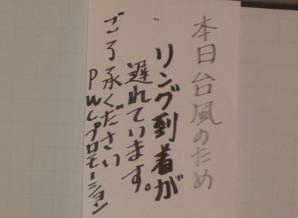 本日台風のため
リング到着が
遅れています。
ご了承ください
PWCプロモーション